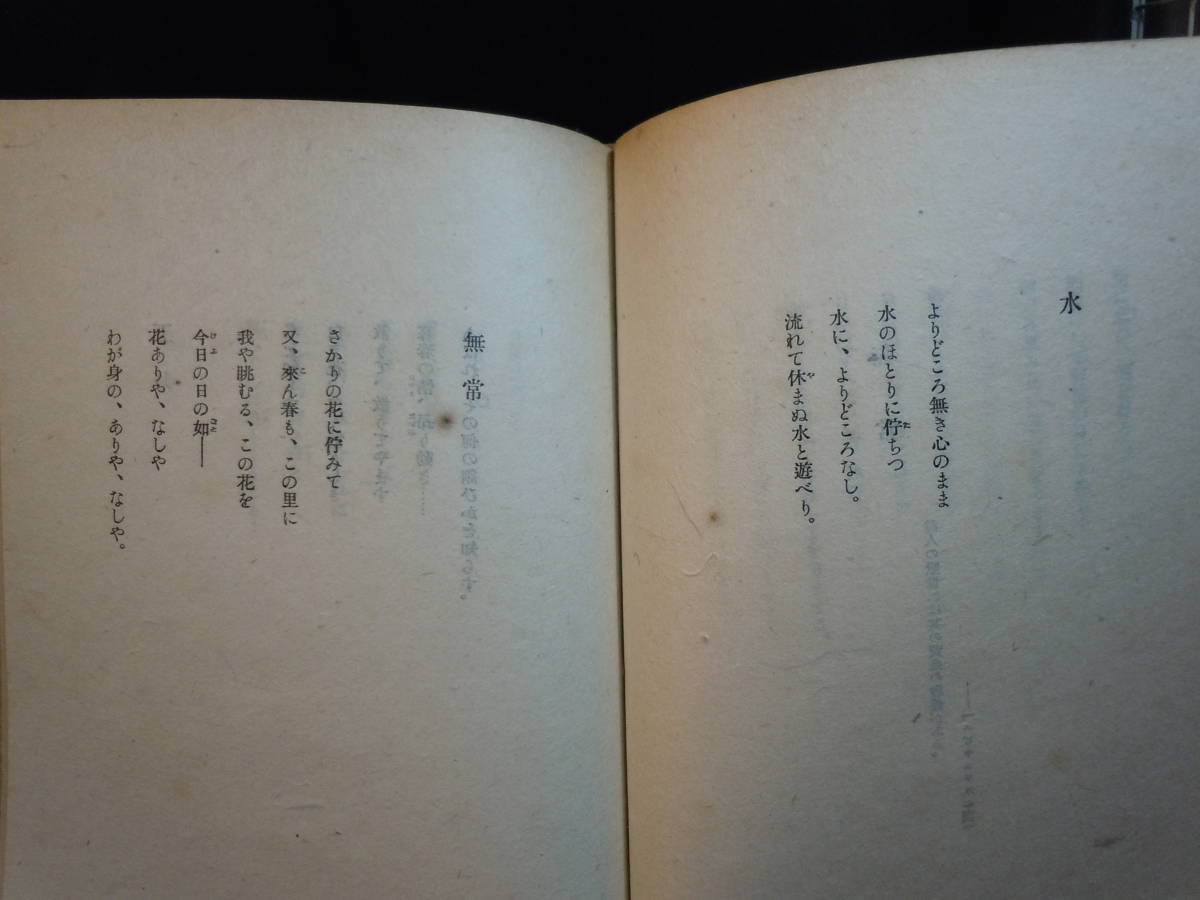 水
よりどころ無き心のまま
水のほとりに佇ちつ
水に、よりどころなし。
流れて休まぬ水と遊べり。
無常
さかりの花に佇みて
又、來ん春も、この里に
我や眺むる、この花を
今日の日の如――
花ありや、なしや
わが身の、ありや、なしや。